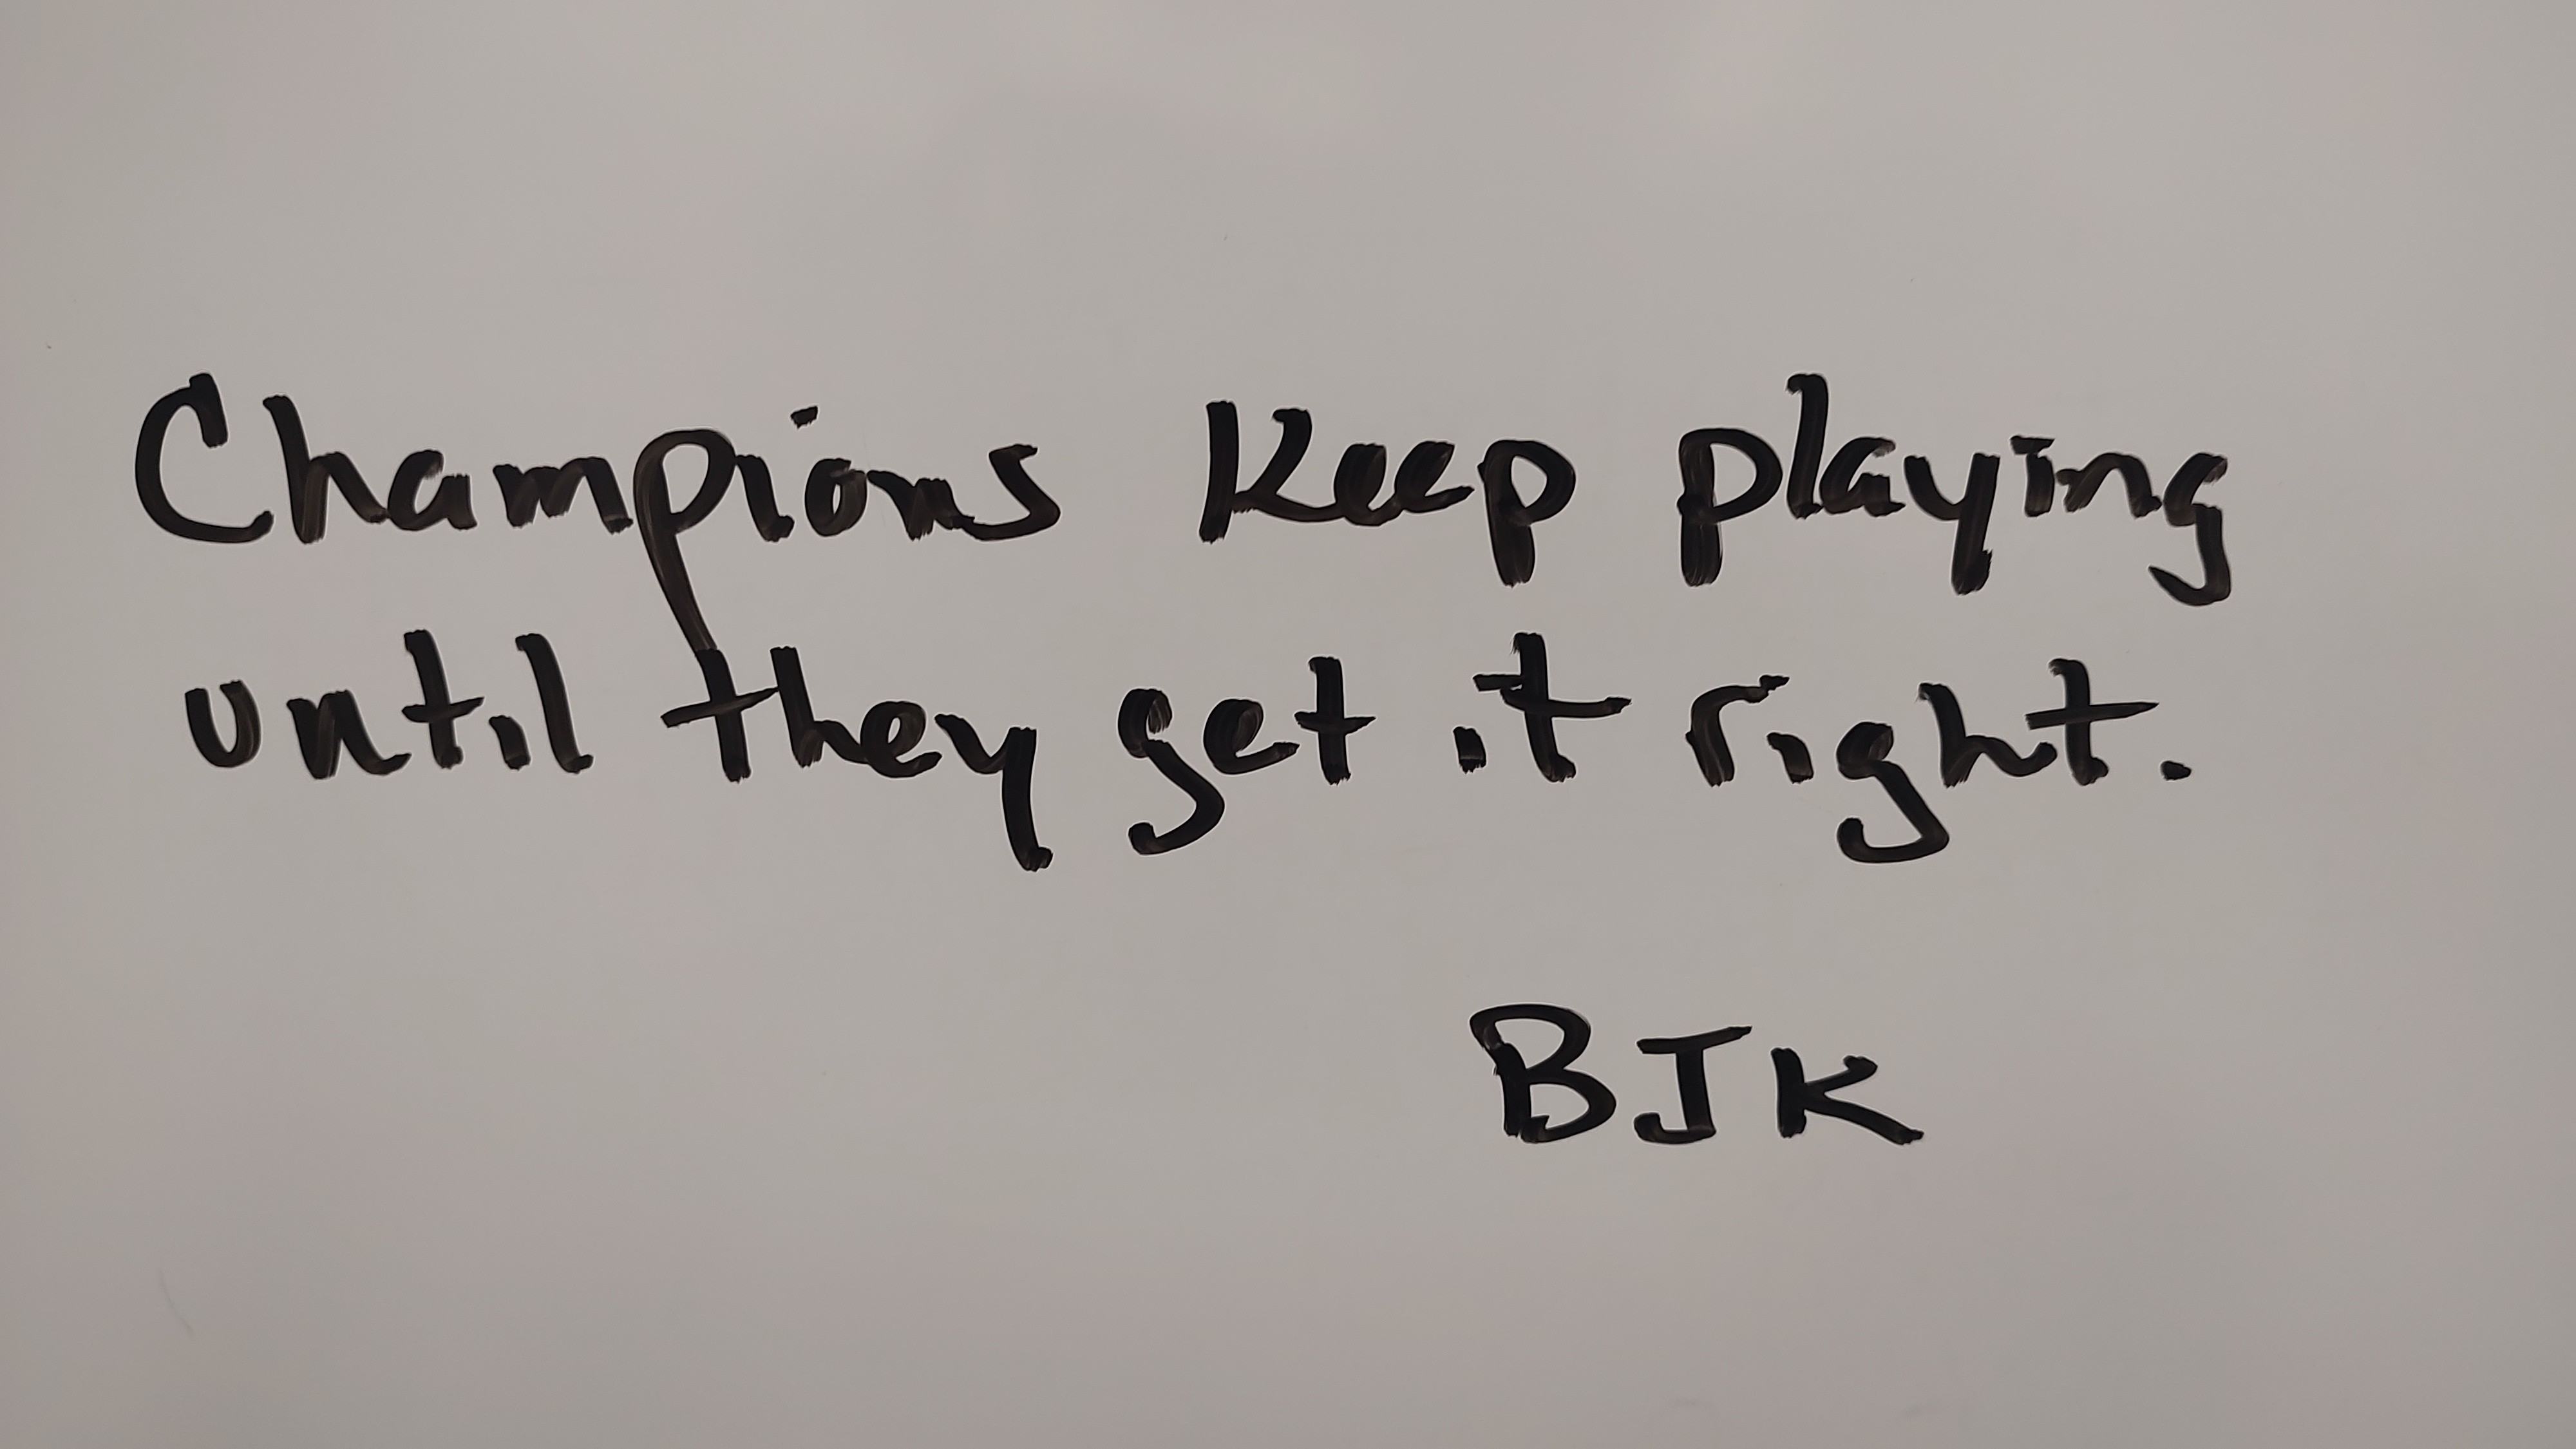 Champions keep playing
until they get it right.
BJK